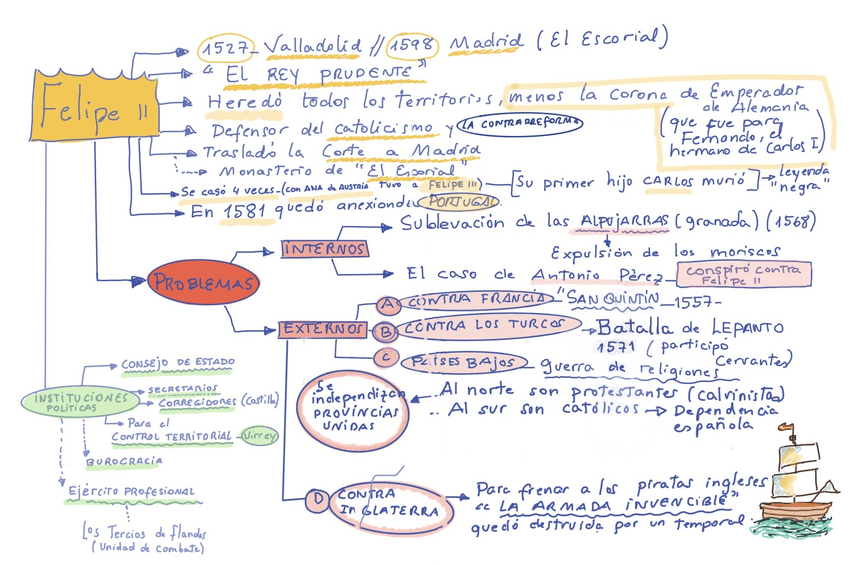 Felipe II
1527_ Valladolid // 1598 Madrid (El Escorial)
"EL REY PRUDENTE"
Heredó todos los territorios, menos la corona de Emperador
de Alemania
(que fue para
Fernando, el
hermano de Carlos I)
Defensor del catolicismo y LA CONTRARREFORMA
Trasladó la Corte a Madrid
Monasterio de "El Escorial"
Se casó 4 veces-(con ANA de AUSTRIA tuvo a FELIPE III)
[Su primer hijo CARLOS murió]
leyenda
"negra"
En 1581 quedó anexiondo PORTUGAL
PROBLEMAS
INTERNOS
Sublevación de las ALPUJARRAS (granada) (1568)
Expulsión de los moriscos
El caso de Antonio Pérez
conspiró contra
Felipe II
EXTERNOS
A CONTRA FRANCIA "SAN QUINTÍN _1557-
B CONTRA LOS TURCOS
Batalla de LEPANTO
1571 (participó
Cervantes)
C PAÍSES BAJOS guerra de religiones
Se
independizan
PROVINCIAS
UNIDAS
Al norte son protestantes (calvinistas)
Al sur son católicos → Dependencia
española
D CONTRA
INGLATERRA
Para frenar a los piratas ingleses
"LA ARMADA INVENCIBLE"
quedó destruida por un temporal
INSTITUCIONES
POLÍTICAS
CONSEJO DE ESTADO
SECRETARIOS
CORREGIDORES (Castilla)
Para el
CONTROL TERRITORIAL - Virrey
BUROCRACIA
Ejército PROFESIONAL
Los Tercios de flandes
(Unidad de combate)